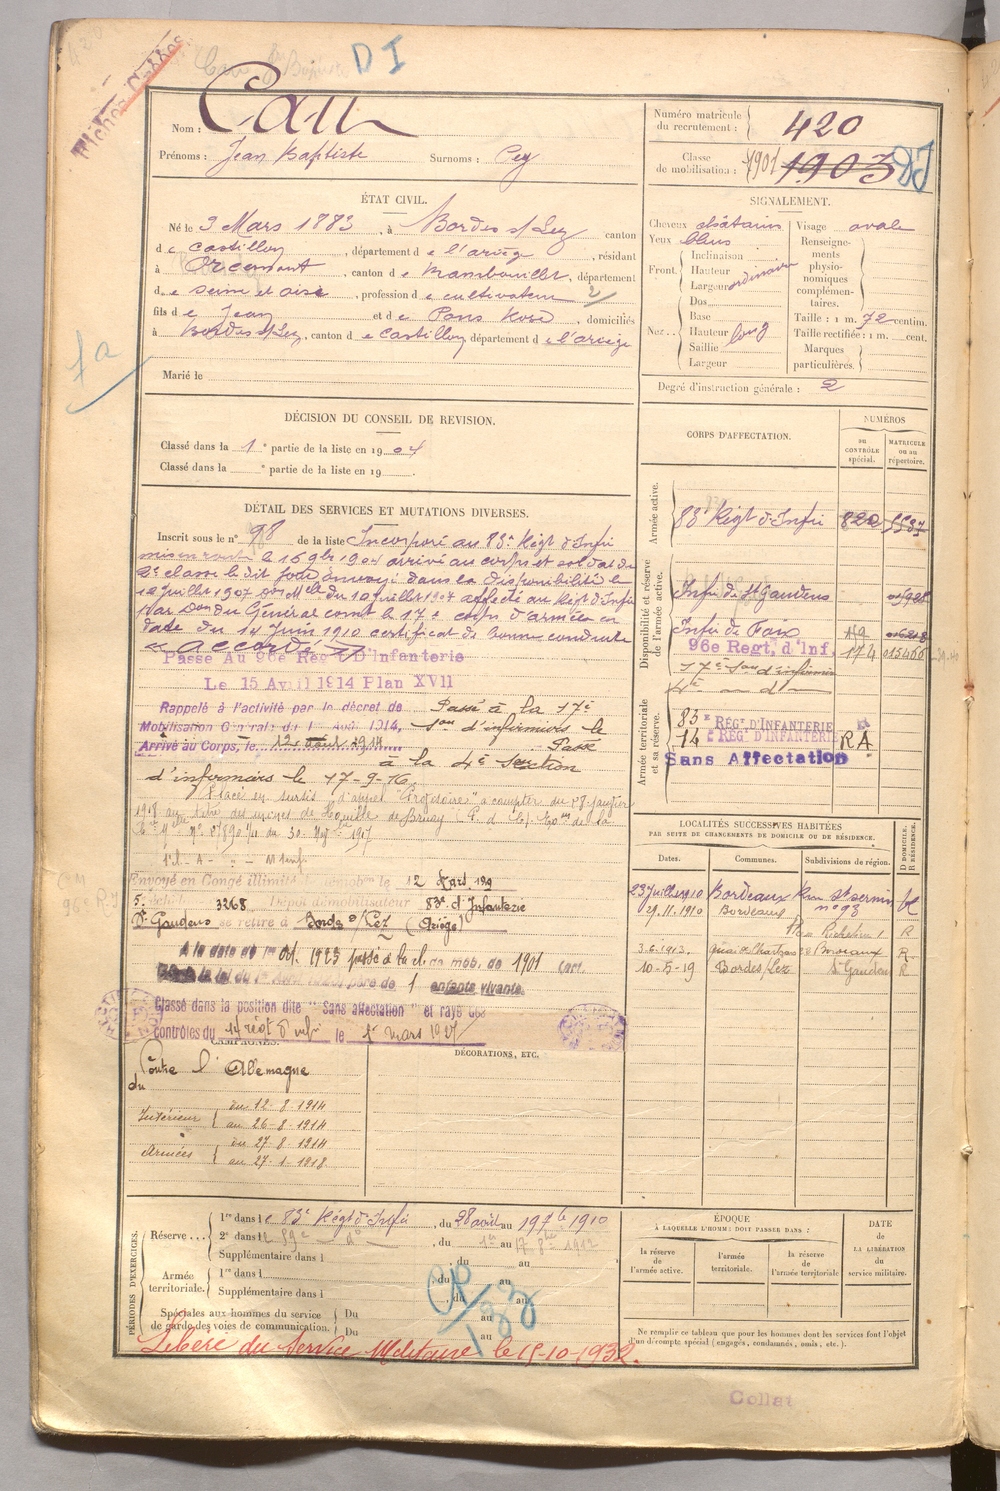 Fiches
DI
Nom : Cau
Prénoms : Jean Baptiste Surnoms : Pey
Numéro matricule du recrutement : 420
Classe de mobilisation : 1901 1903 DI
ÉTAT CIVIL.
Né le 3 Mars 1883, à Bordes s/Lez canton
d e Castillon, département d e l'ariège, résidant
à Orcemont, canton d e Rambouillet, département
d e Seine et oise, profession d e cultivateur
fils d e Jean et d e Pons Rose, domiciliés
à Bordes s/Lez, canton d e Castillon, département d e l'ariège
Marié le
1a
SIGNALEMENT.
Cheveux châtains
Yeux bleus
Front. Inclinaison
Hauteur
Largeur ordinaire
Nez. Dos
Base
Hauteur long
Saillie
Largeur
Visage ovale
Renseignements physionomiques complémentaires.
Taille : 1 m. 72 centim.
Taille rectifiée : 1 m. cent.
Marques particulières.
Degré d'instruction générale : 2
DÉCISION DU CONSEIL DE REVISION.
Classé dans la 1e partie de la liste en 1904
Classé dans la e partie de la liste en 19 .
CORPS D'AFFECTATION.
NUMÉROS
au CONTRÔLE spécial.
MATRICULE ou au répertoire.
Armée active.
83e Régt d'Infie 822 5537
Disponibilité et réserve de l'armée active.
Infie de St Gaudens
Infie de Foix
96e Regt. d'Inf. 174 015466
17e Son d'infirmiers
4e — d° —
Armée territoriale et sa réserve.
83e RÉGT D'INFANTERIE
14e RÉGT D'INFANTERIE RA
Sans Affectation
DÉTAIL DES SERVICES ET MUTATIONS DIVERSES.
Inscrit sous le n° 98 de la liste Incorporé au 83e Régt d'Infie
mis en route le 16 9bre 1904 arrivé au corps et soldat de
2e classe le dit jour envoyé dans la disponibilité le
12 juillet 1907 affecté au Régt d'Infie
Général comt le 17e corps d'armée en
date du 14 Juin 1910 certificat de bonne conduite
« accordé »
Passé Au 96e Régt D'Infanterie
Le 15 Avril 1914 Plan XVII
Rappelé à l'activité par le décret de
Mobilisation Générale du 1er Août 1914,
Arrivé au Corps, le 12 août 1914
Passé à la 17e
Son d'infirmiers le
Passé
à la 4e Section
d'infirmiers le 17-9-16
Placé en sursis d'appel "Provisoire" à compter du 28 janvier
1918 au titre des mines de Houille de Bruay
du 30 1917
Envoyé en Congé illimité de démobon le 12 Mars 1919
5e échelon 3268 Dépôt démobilisateur 83e d'Infanterie
St Gaudens se retire à Bordes s/Lez (Ariège)
A la date du 1er Oct. 1923 passé à la cl. de mob. de 1901
père de 1 enfants vivants.
Classé dans la position dite "Sans affectation" et rayé des
contrôles du 14 régt d'infie le 1er mars 1927
LOCALITÉS SUCCESSIVES HABITÉES
PAR SUITE DE CHANGEMENTS DE DOMICILE OU DE RÉSIDENCE.
Dates. Communes. Subdivisions de région. D DOMICILE. R RÉSIDENCE.
23 Juillet 1910 Bordeaux Rue St Sernin n° 93
29.11.1910 Bordeaux Richelieu 1 R
3.6.1913. quai de Chartrons 28 Bordeaux R
10-5-19 Bordes/Lez St Gaudens R
CAMPAGNES.
Contre l'Allemagne
du
Intérieur du 12-8-1914
au 26-8-1914
Armées du 27-8-1914
au 27-1-1918
DÉCORATIONS, ETC.
PÉRIODES D'EXERCICES.
Réserve 1re dans le 83e Régt d'Infie, du 28 avril au 1910
2e dans le, du au 17 1912
Supplémentaire dans l, du au
Armée territoriale. 1re dans l, du au
Supplémentaire dans l, du au
Spéciales aux hommes du service de garde des voies de communication. Du au
Du au
Libéré du Service Militaire le 15-10-1932.
ÉPOQUE
À LAQUELLE L'HOMME DOIT PASSER DANS :
la réserve de l'armée active.
l'armée territoriale.
la réserve de l'armée territoriale
DATE de LA LIBÉRATION du service militaire.
Ne remplir ce tableau que pour les hommes dont les services font l'objet
d'un décompte spécial (engagés, condamnés, omis, etc.).
Collat